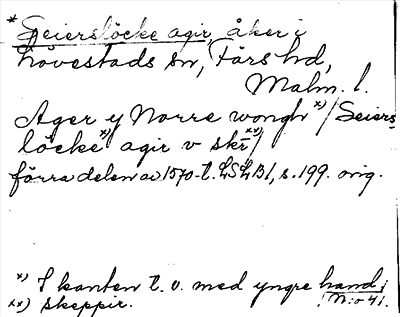 * Seierslöcke agir, åker i
Hövestads sn, Färs hd,
Malm. l.
Ager y Norre wongh x) / Seiers
löcke x) agir v skr xx) /
förra delen av 1570-t. LSLB1, s. 199. orig.
x) I kanten t. v. med yngre hand;
N:o 41.
xx) skeppir.